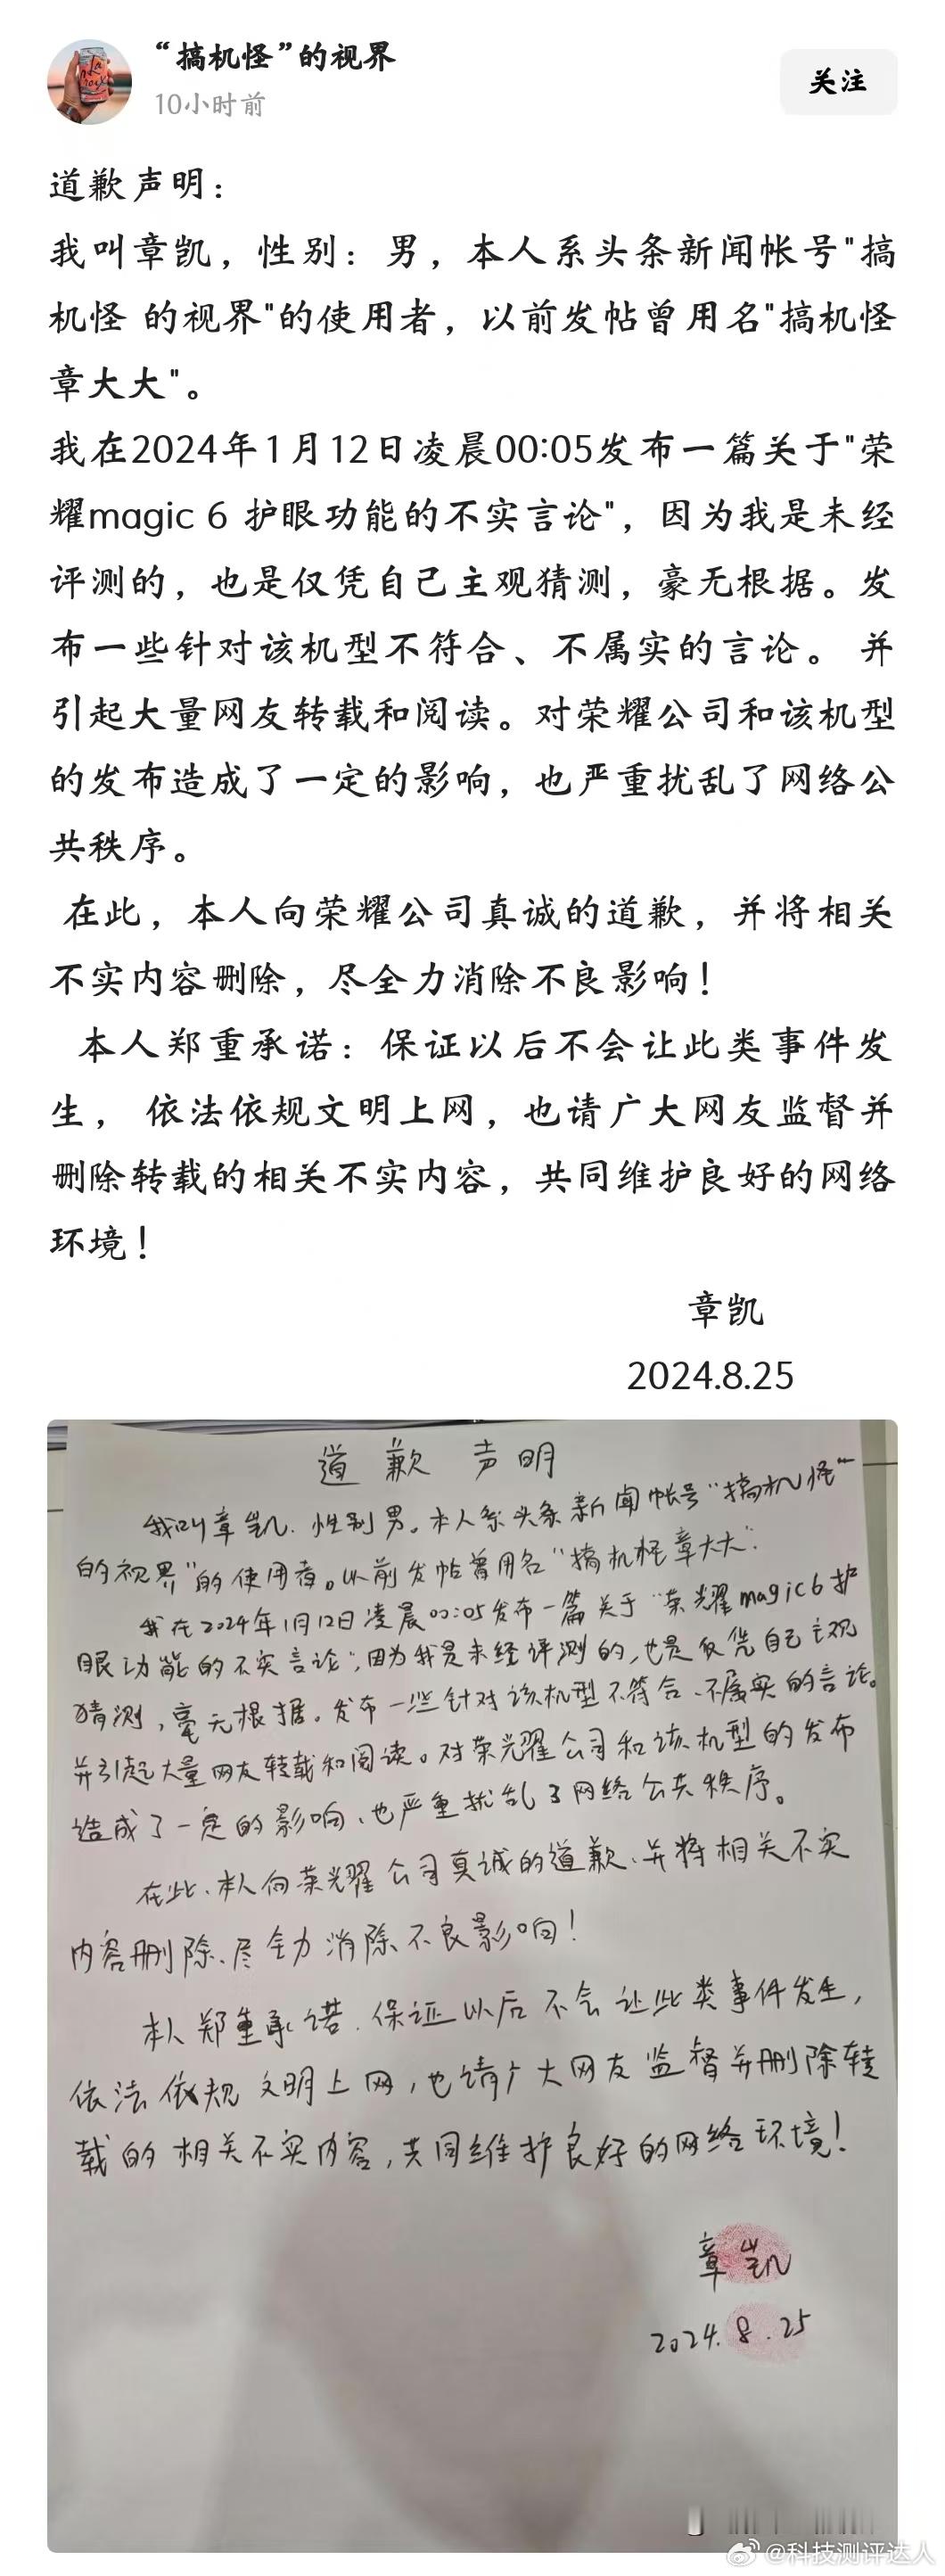 “搞机怪”的视界
10小时前
关注
道歉声明：
我叫章凯，性别：男，本人系头条新闻帐号"搞
机怪 的视界"的使用者，以前发帖曾用名"搞机怪
章大大"。
我在2024年1月12日凌晨00:05发布一篇关于"荣
耀magic 6 护眼功能的不实言论"，因为我是未经
评测的，也是仅凭自己主观猜测，豪无根据。发
布一些针对该机型不符合、不属实的言论。 并
引起大量网友转载和阅读。对荣耀公司和该机型
的发布造成了一定的影响，也严重扰乱了网络公
共秩序。
在此，本人向荣耀公司真诚的道歉，并将相关
不实内容删除，尽全力消除不良影响！
本人郑重承诺：保证以后不会让此类事件发
生， 依法依规文明上网，也请广大网友监督并
删除转载的相关不实内容，共同维护良好的网络
环境！
章凯
2024.8.25
道歉声明
我叫章凯.性别男。本人系头条新闻帐号“搞机怪”
的视界”的使用者。以前发帖曾用名“搞机怪章大大”.
我在2024年1月12日凌晨00:05发布一篇关于“荣耀magic6护
眼功能的不实言论”,因为我是未经评测的,也是仅凭自己主观
猜测,毫无根据。发布一些针对该机型不符合、不属实的言论。
并引起大量网友转载和阅读。对荣耀公司和该机型的发布
造成了一定的影响、也严重扰乱了网络公共秩序。
在此、本人向荣耀公司真诚的道歉、并将相关不实
内容删除、尽全力消除不良影响!
本人郑重承诺.保证以后不会让此类事件发生,
依法依规文明上网,也请广大网友监督并删除转
载的相关不实内容,共同维护良好的网络环境!
章凯
2024.8.25
@科技测评达人